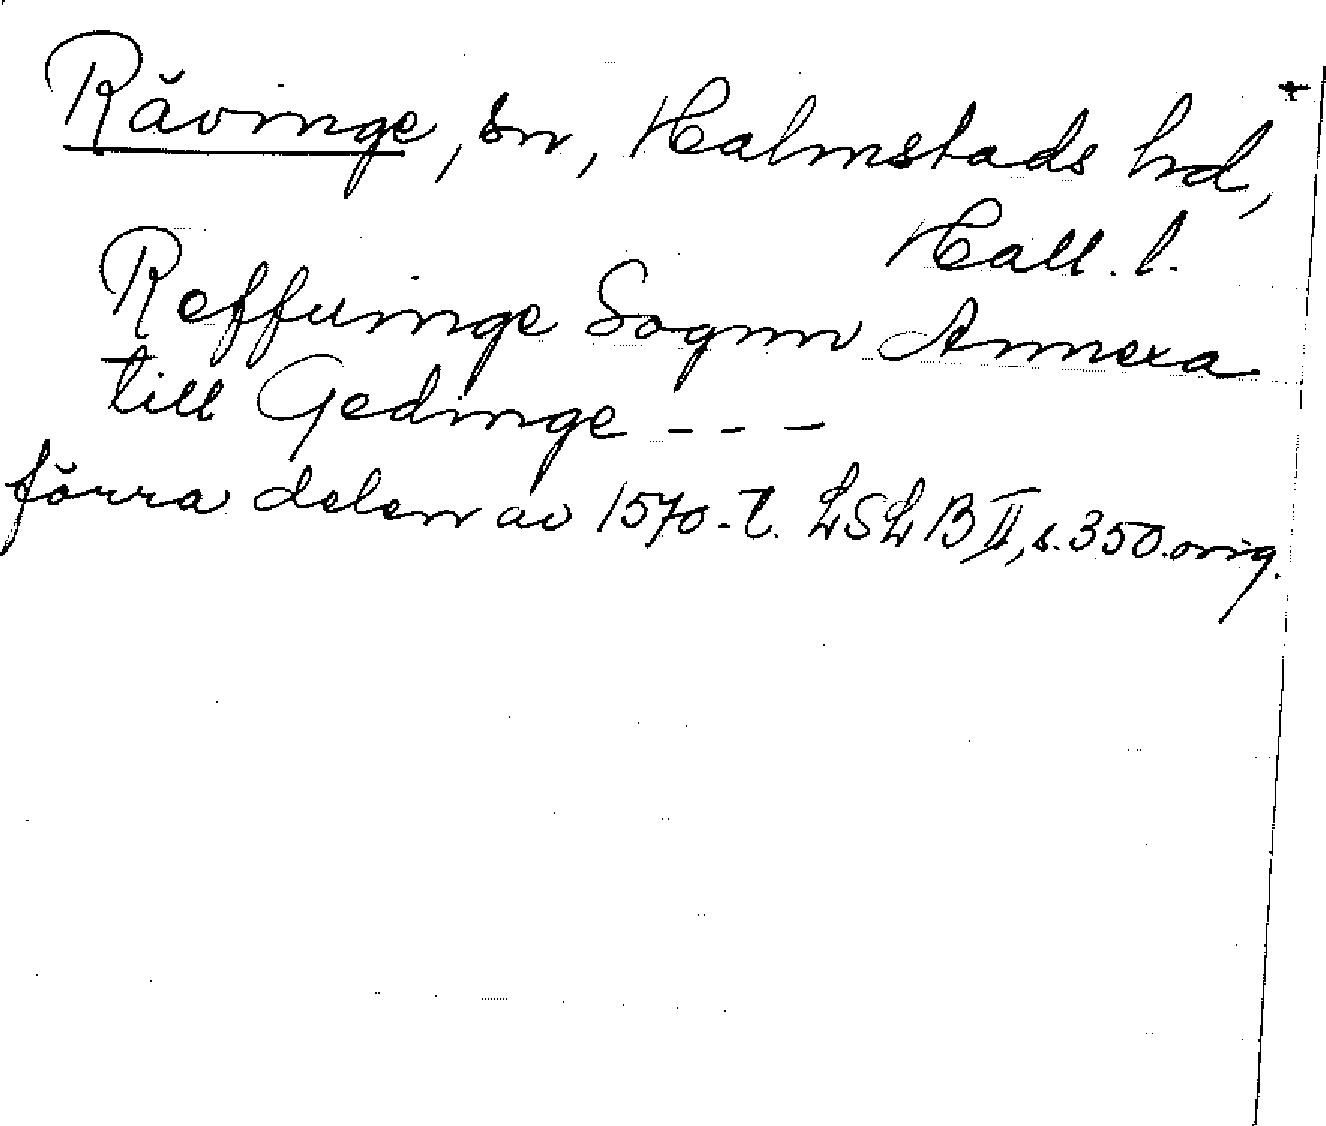 Rävinge, sn, Halmstads hd,
Hall. l.
Reffuinge Sognn Annexa
till Gedinge - - -
förra delen av 1570-t. LSLB II, s. 350. orig.